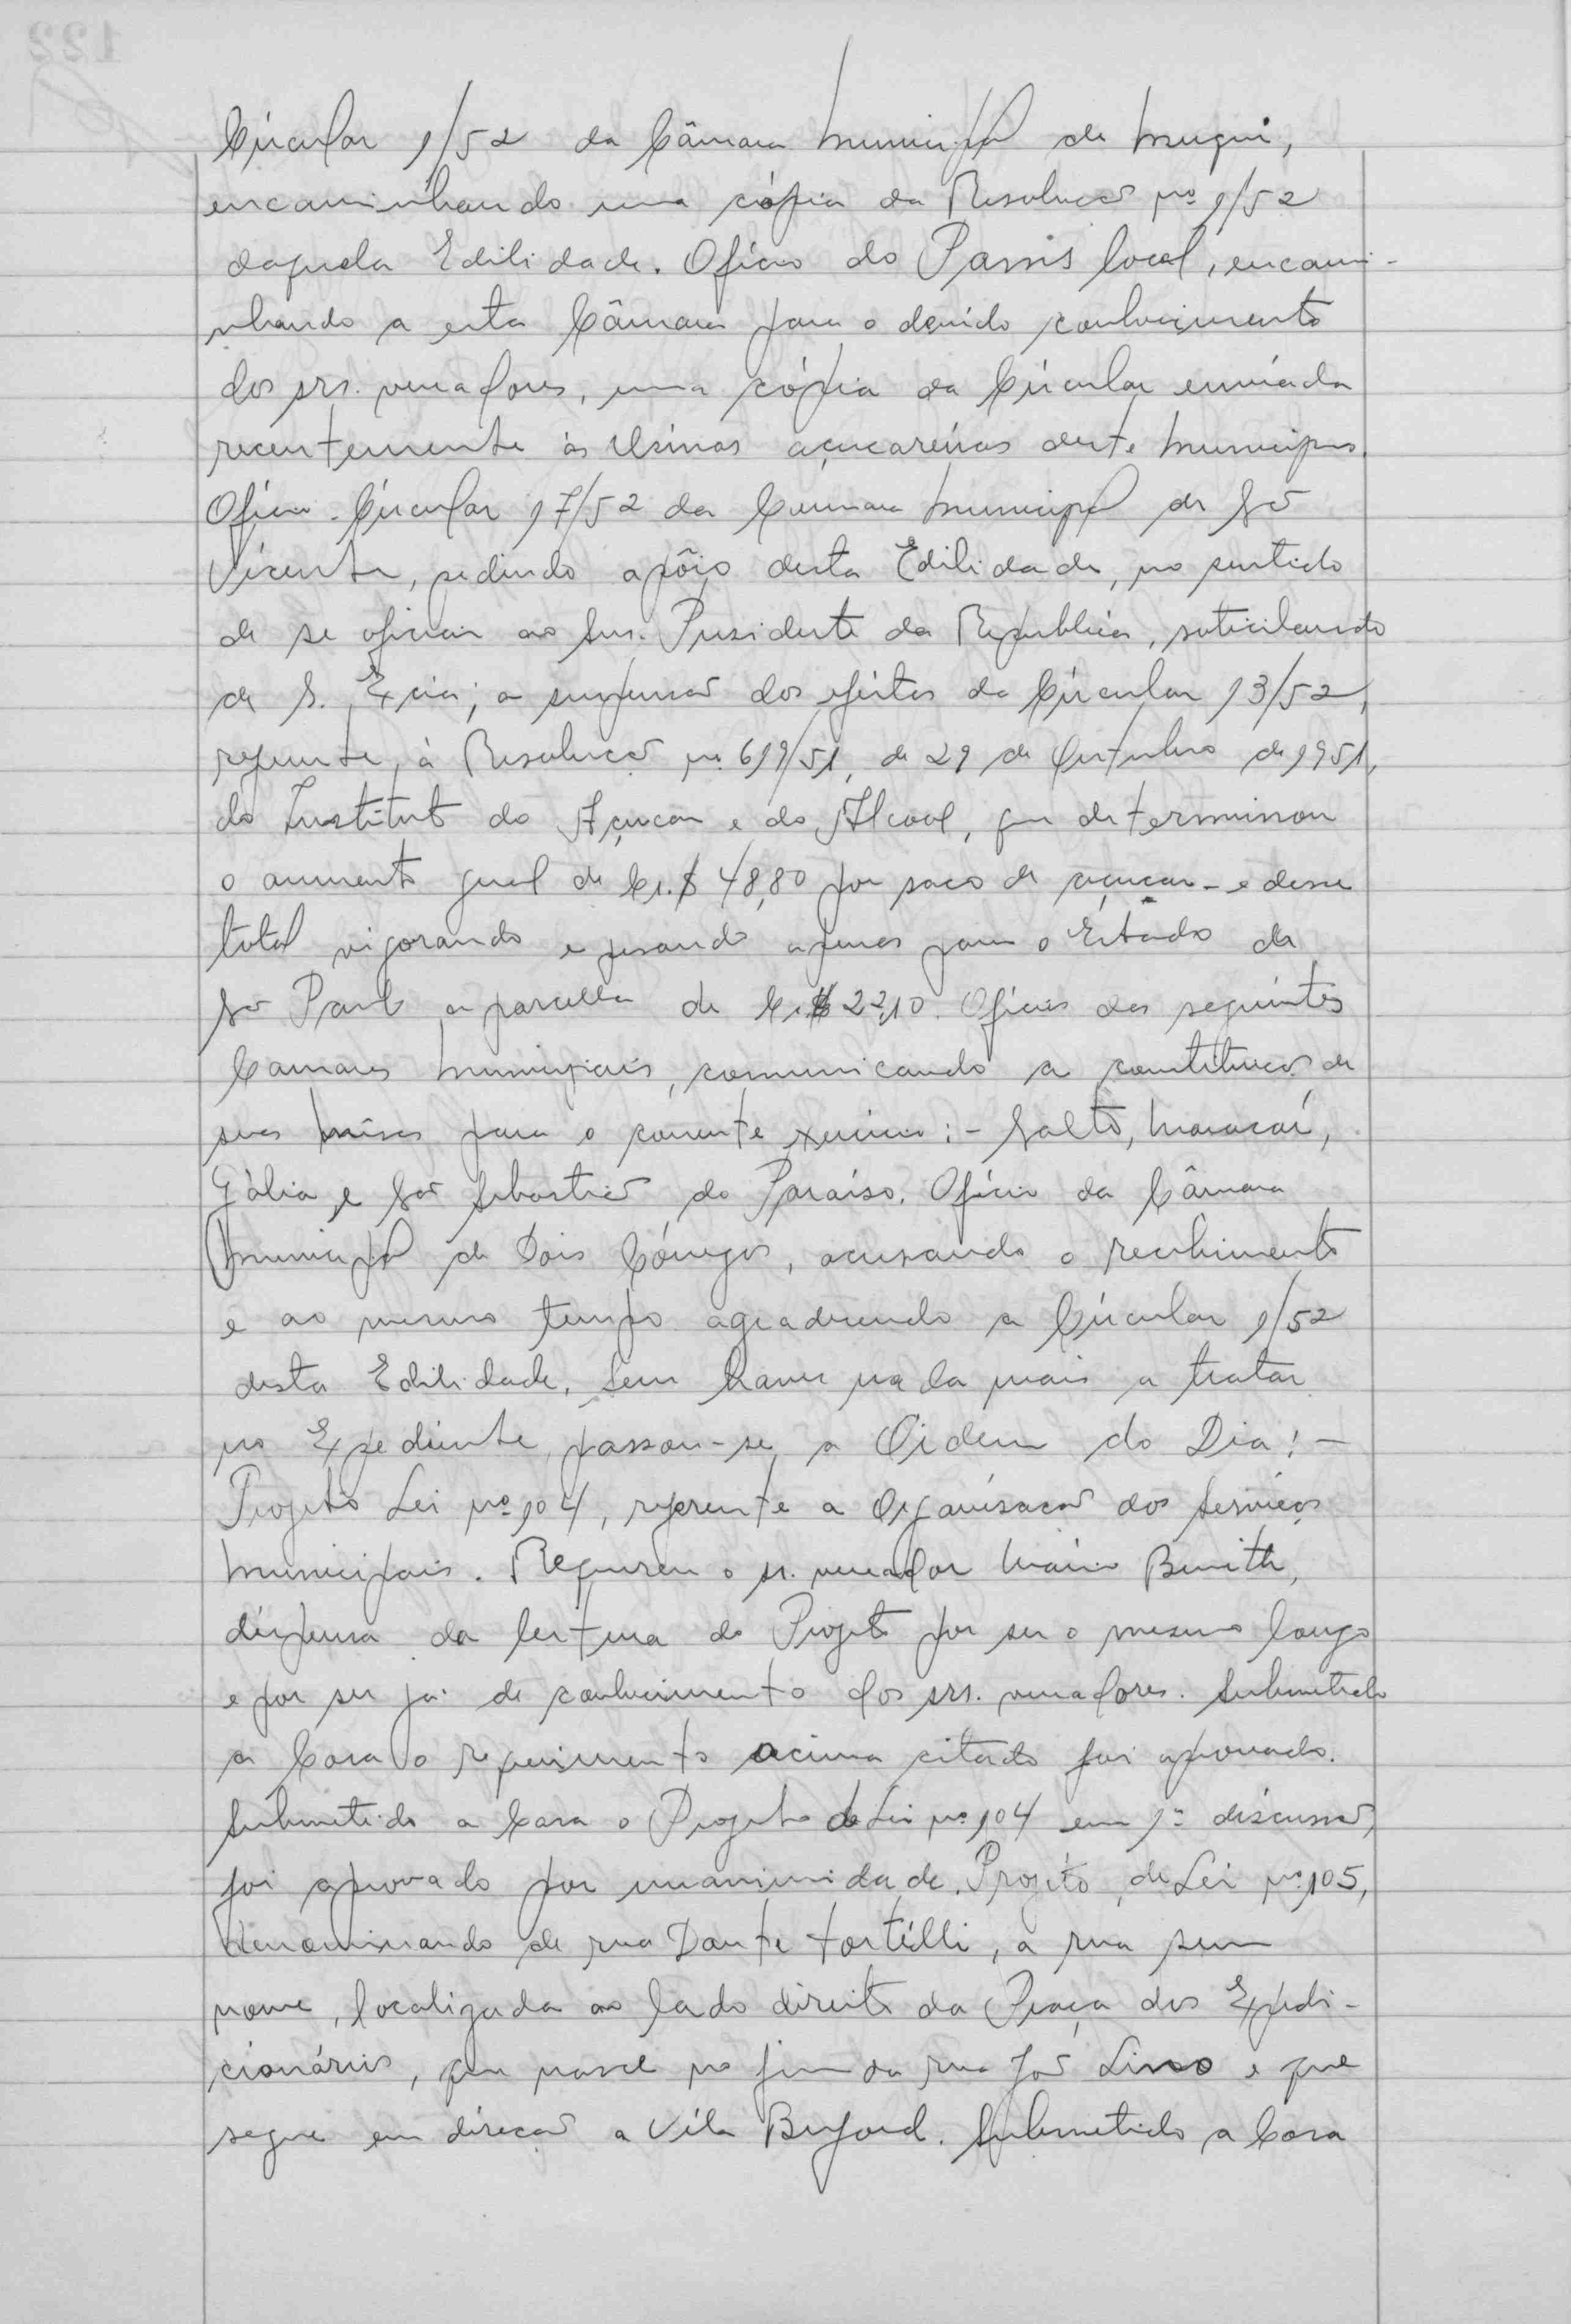 Círcular 1/52 da Câmara Municipal de Muqui,
encaminhando uma cópia da Resolução nº 1/52
daquela Edilidade. Ofício do Parris local, encami-
nhando a esta Câmara para o devido conhecimento
dos srs. vereadores, uma cópia da Círcular envíada
recentemente às Usinas açucareiras deste Município.
Ofício-Círcular 17/52 da Camara Municipal de São
Vicente, pedindo apôio desta Edilidade, no sentido
de se oficiar ao Snr. Presidente da Republica, soticilando
de S. Excia; a suspensão dos efeitos da Círcular 13/52,
referente, à Resolução nº 619/51, de 29 de Outubro de 1951,
do Instituto do Açucar e do Alcool, que determinou
o aumento geral de Cr.$ 48,80 por saco de açucar - e desse
total vigorando e pesando apenas para o Estado de
São Paulo a parcella de Cr.$ 22,10. Ofícios das seguintes
Camaras Municipais, comunicando a constituição de
suas Mesas para o corrente exercício: - Salto, Maracaí,
Gália e São Sebastião do Paraíso. Ofício da Câmara
Municipal de Dois Córregos, acusando o recebimento
e ao mesmo tempo agradecendo a Círcular 1/52
desta Edilidade. Sem haver nada mais a tratar
no Expediente, passou-se a Ordem do Dia: -
Projeto Lei nº 104, referente a Organisação dos Serviços
Municipais. Requereu o sr. vereador Mário Benith,
díspensa da leitura do Projeto por ser o mesmo longo
e por ser já de conhecimento dos srs. vereadores. Submetido
a Casa o requerimento acima citado foi aprovado.
Submetido a Casa o Projeto de Lei nº 104 em 1ª díscussão,
foi aprovado por unanimidade. Projéto de Lei nº 105,
denominando de rua Dante Fortélli, a rua sem
nome, localizada ao lado direito da Praça dos Expedi-
cionários, que nasce no fim da rua Joã Lino e que
segue em díreção a Víla Buford. Submetido a Casa